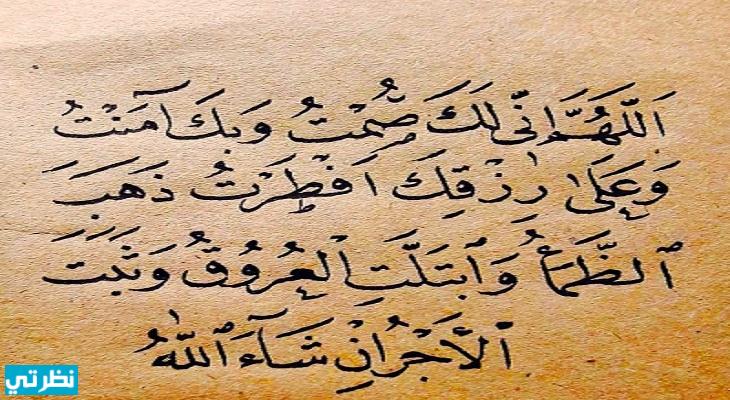 اَللَّهُمَّ اِنِّي لَكَ صُمْتُ وَبِكَ آمَنْتُ
وَعَلَى رِزْقِكَ اَفْطَرْتُ ذَهَبَ
ٱلظَّمَأُ وَٱبْتَلَّتِ الْعُرُوقُ وَثَبَتَ
ٱلْأَجْرُ اِنْ شَآءَ ٱللّٰهُ
نظرتي